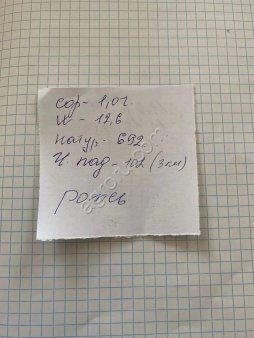 сор - 1,01.
W - 12,6
натур - 692
Ч пад - 102 (3 кл)
рожь